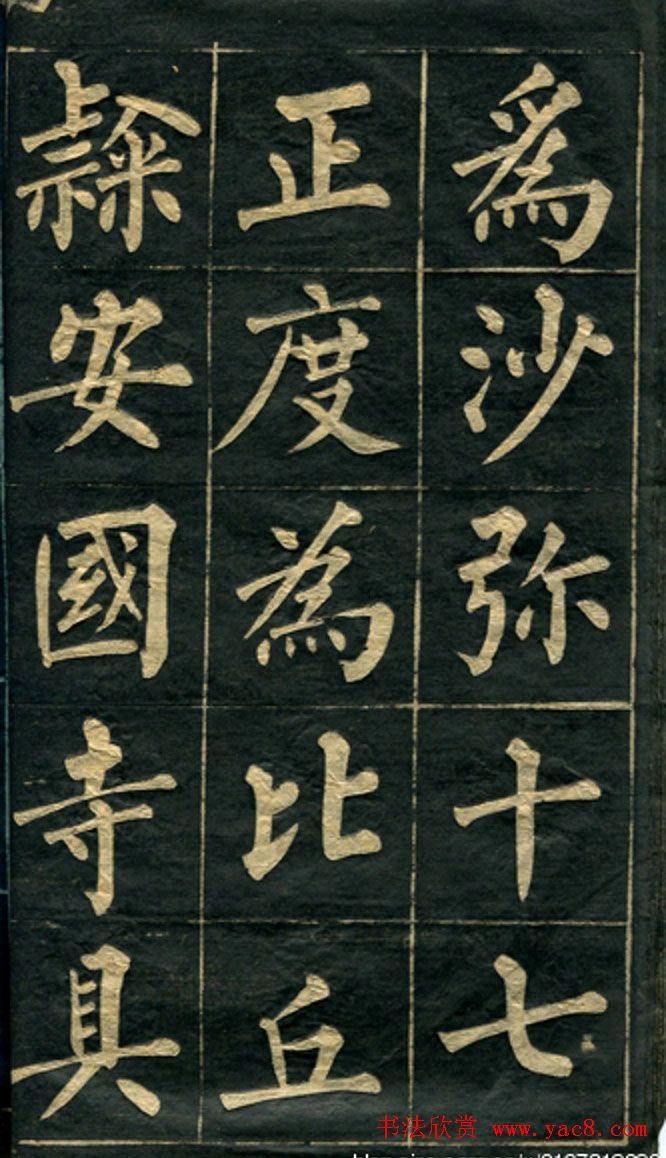 爲沙弥十七
正度為比丘
隸安國寺具
书法欣赏 www.yac8.com